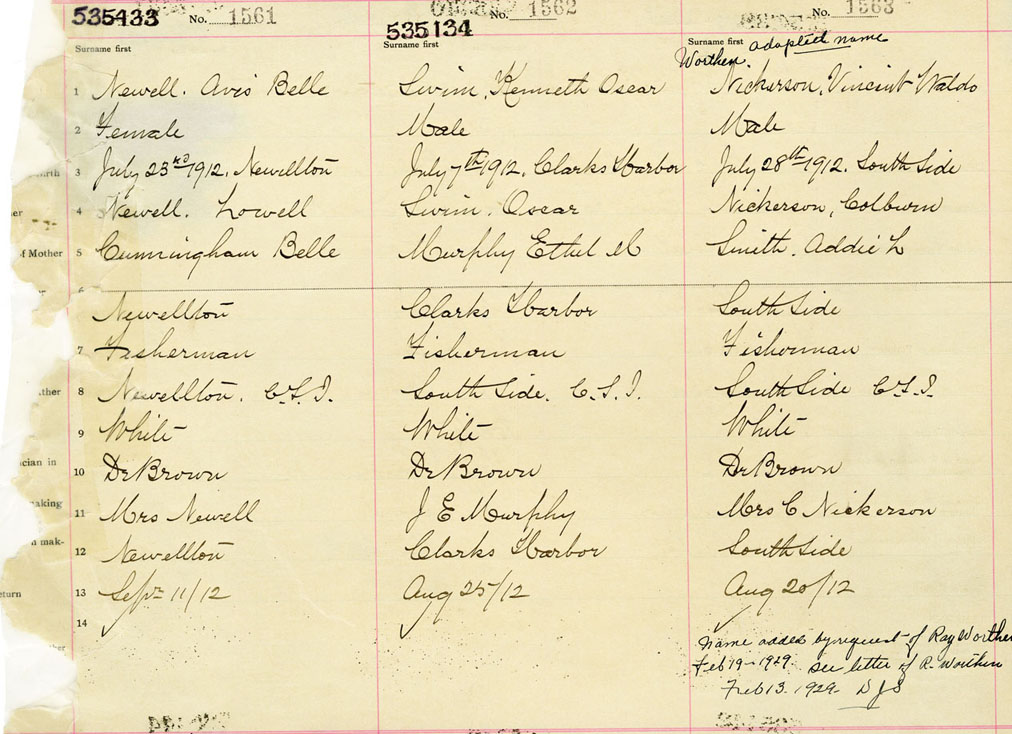 535433 No. 1561
Surname first
1 Newell. Avis Belle
2 Female
3 July 23rd 1912. Newellton
4 Newell. Lowell
5 Cunningham Belle
6
Newellton
7 Fisherman
8 Newellton. C.S.I.
9 White
10 Dr Brown
11 Mrs Newell
12 Newellton
13 Sept 11/12
14
535134 No. 1562
Surname first
Swim, Kenneth Oscar
Male
July 7th 1912. Clarks Harbor
Swim. Oscar
Murphy Ethel M
Clarks Harbor
Fisherman
South Side. C.S.I.
White
Dr Brown
J E Murphy
Clarks Harbor
Aug 25/12
No. 1563
Surname first
Worthen adopted name
Nickerson, Vincent Waldo
Male
July 28th 1912. South Side
Nickerson, Colbwin
Smith. Addie L
South Side
Fisherman
South Side C.S.I.
White
Dr Brown
Mrs C Nickerson
South Side
Aug 20/12
Name added by request of Ray Worthen
Feb 19-1929. see letter of R. Worthen
Feb 13. 1929. DJS
of Mother
ther
cian in
aking
n mak-
eturn